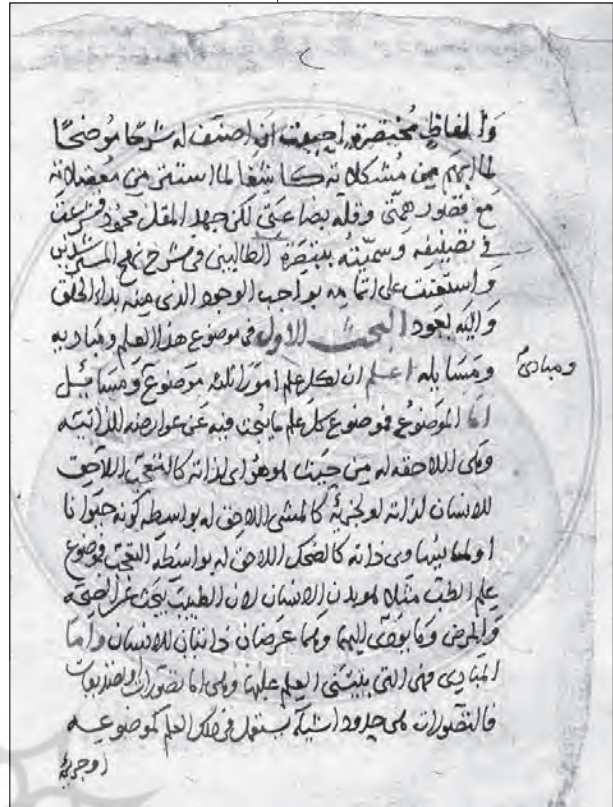 وألفاظٍ مختصرة احببت ان اصنف له شرحا موضحًا
لما ابهم من مشكلاته كاشفا لما استتر من معضلاته
مع قصور همتى وقلة بضاعتى لكن جهد المقل فشرعت
فى تصنيفه وسميته بتبصرة الطالبين فى شرح نهج المسترشدين
واستعنت على اتمامه بواجب الوجود الذى منه بداء الخلق
واليه يعود البحث الاول فى موضوع هذا العلم ومباديه
ومسايله اعلم ان لكل علم امورا ثلثه موضوع ومسايل
ومبادى
اما الموضوع فموضوع كل علم ما يبحث فيه عن عوارضه الذاتيه
وهى اللاحقه له من حيث هو هو اى لذاته كالتعجب اللاحق
للانسان لذاته او لجزيه كالمشى اللاحق له بواسطه كونه حيوانا
او لما يساوى ذاته كالضحك اللاحق له بواسطه التعجب فموضوع
علم الطب مثلا هو بدن الانسان لان الطبيب يبحث عن الصحه
والمرض وما يؤدى اليهما وهما عرضان ذاتيان للانسان واما
المبادى فهى التى يبتنى العلم عليها وهى اما تصورات او تصديقات
فالتصورات هى حدود اشياء يستعمل فى ذلك العلم كموضوعه
او جزيه